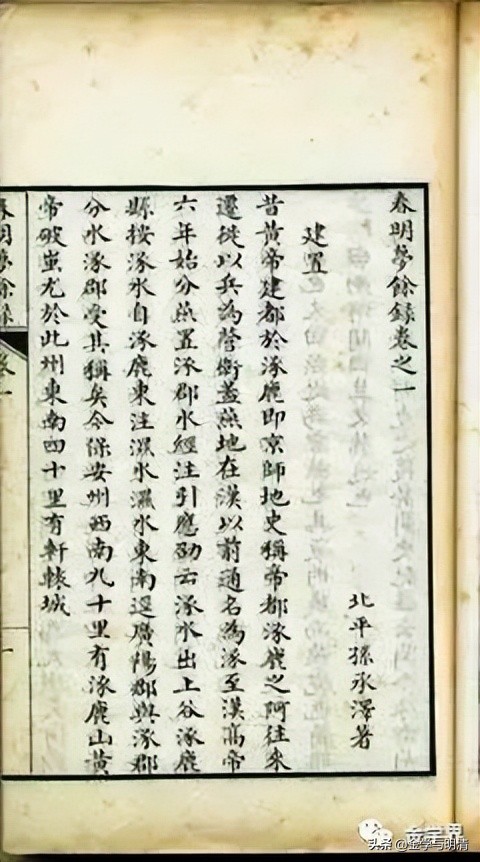 春明夢餘錄卷之一
北平孫承澤著
建置
昔黃帝建都於涿鹿即京師地史稱帝都涿鹿之阿往來
遷徙以兵為營衛蓋燕地在漢以前通名為涿至漢高帝
六年始分燕置涿郡水經注引應劭云涿水出上谷涿鹿
縣按涿水自涿鹿東注濕水濕水東南逕廣陽郡與涿郡
分水涿郡受其稱矣今保安州西南九十里有涿鹿山黃
帝破蚩尤於此州東南四十里有軒轅城
春明夢餘錄
卷一
一
金學界
头条 @金学与明清